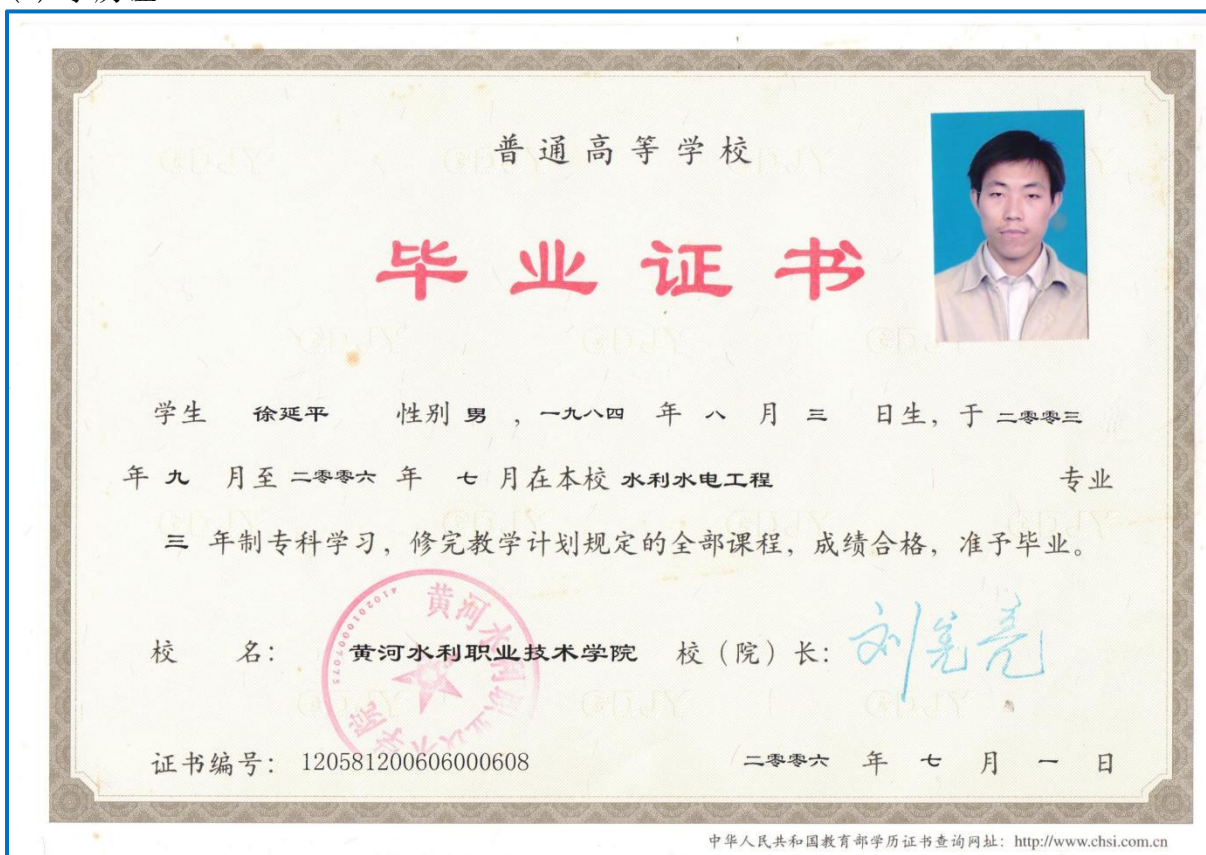 普通高等学校
毕业证书
学生 徐延平 性别 男 ，一九八四 年 八 月 三 日生，于 二零零三
年 九 月至 二零零六 年 七 月在本校 水利水电工程 专业
三 年制专科学习，修完教学计划规定的全部课程，成绩合格，准予毕业。
黄河水利职业技术学院
4102010007075
校 名： 黄河水利职业技术学院 校（院）长：
证书编号： 120581200606000608 二零零六 年 七 月 一 日
中华人民共和国教育部学历证书查询网址：http://www.chsi.com.cn